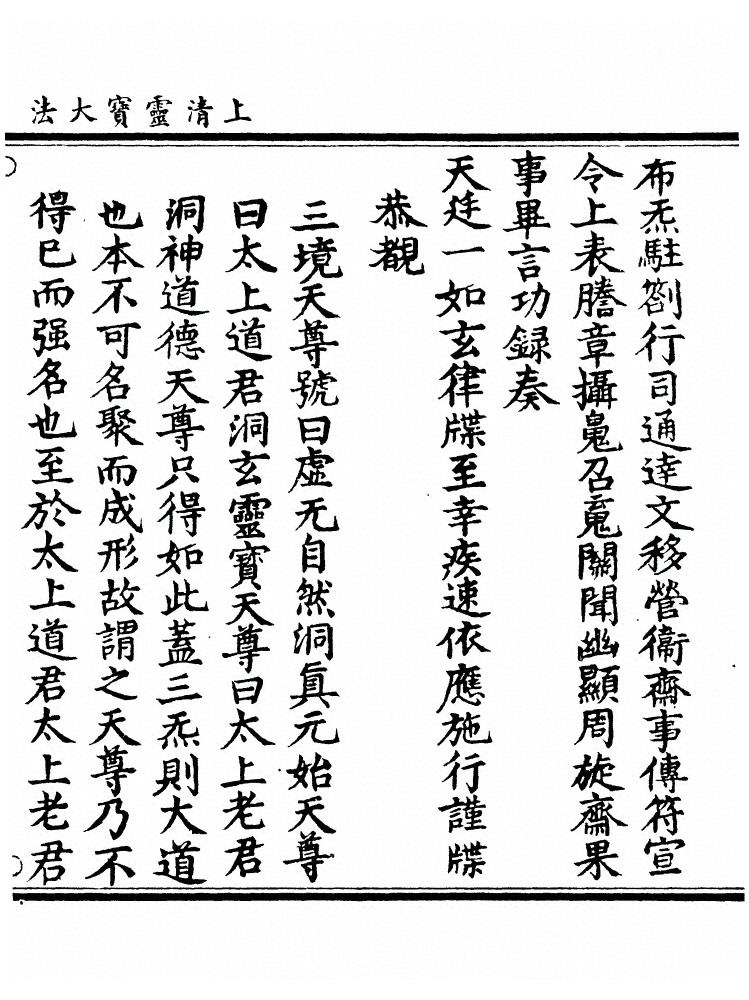 上清靈寶大法
布炁駐劄行司通達文移營衞齋事傳符宣
令上表謄章攝䰟召魂關聞幽顯周旋齋果
事畢言功録奏
天廷一如玄律牒至幸疾速依應施行謹牒
恭觀
三境天尊號曰虚无自然洞真元始天尊
曰太上道君洞玄靈寶天尊曰太上老君
洞神道德天尊只得如此蓋三炁則大道
也本不可名聚而成形故謂之天尊乃不
得巳而强名也至於太上道君太上老君